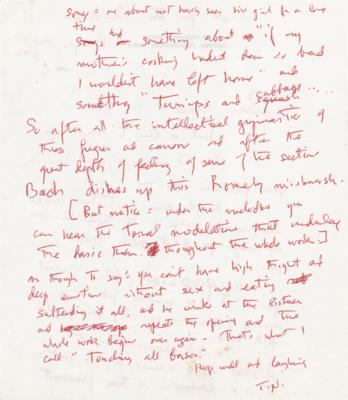 songs = one about not having seen his girl for a long
time
something about "if my
mother's cooking hadn't been so bad
I wouldn't have left home" and
something "turnips and cabbage"....
So after all the intellectual gymnastics of
these fugues and canons and after the
great depth of feeling of some of the sections
Bach dishes up this homely mishmash.
[But notice = under the melodies you
can hear the tonal modulations that underlay
the basic theme throughout the whole work.]
As though to say: you can't have high thought and
deep emotion without sex and eating
it all, and he winks at the listener
and repeats the opening and the
whole work begins once again. That's what I
call "Touching all bases."
Keep well and laughing
T.N.